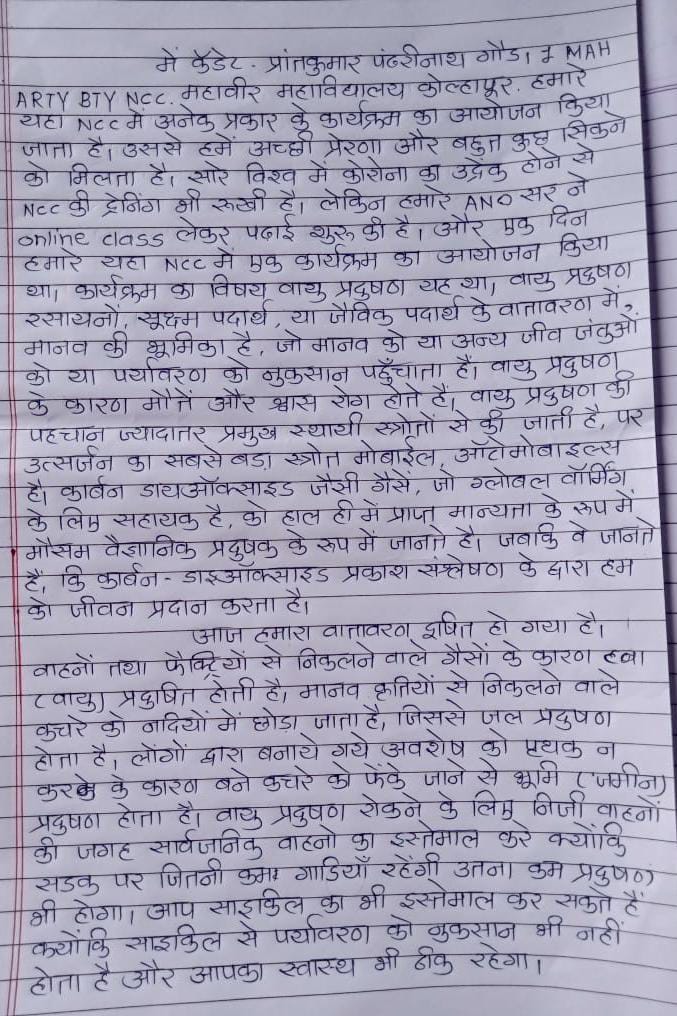 में कॅडेट - प्रांतकुमार पंढरीनाथ गौड, 1 MAH
ARTY BTY NCC. महावीर महाविद्यालय कोल्हापूर. हमारे
यहा NCC में अनेक प्रकार के कार्यक्रम का आयोजन किया
जाता है, उससे हमें अच्छी प्रेरणा और बहुत कुछ सिकने
को मिलता है। सारे विश्व में कोरोना का उद्रेक होने से
NCC की ट्रेनिंग भी रूखी है। लेकिन हमारे ANO सर ने
online class लेकर पढाई शुरू की है। और एक दिन
हमारे यहा NCC में एक कार्यक्रम का आयोजन किया
था, कार्यक्रम का विषय वायु प्रदुषण यह था, वायु प्रदुषण
रसायनों, सूक्ष्म पदार्थ, या जैविक पदार्थ के वातावरण में,
मानव की भूमिका है, जो मानव को या अन्य जीव जंतुओं
को या पर्यावरण को नुकसान पहुँचाता है। वायु प्रदुषण
के कारण मौतें और श्वास रोग होते है, वायु प्रदुषण की
पहचान ज्यादातर प्रमुख स्थायी स्त्रोतों से की जाती है, पर
उत्सर्जन का सबसे बडा स्त्रोत मोबाईल, ऑटोमोबाइल्स
है। कार्बन डायऑक्साइड जैसी गैसें, जो ग्लोबल वॉर्मिंग
के लिए सहायक है, को हाल ही में प्राप्त मान्यता के रूप में
मौसम वैज्ञानिक प्रदुषक के रूप में जानते है। जबकि वे जानते
है, कि कार्बन - डाइऑक्साइड प्रकाश संश्लेषण के द्वारा हम
को जीवन प्रदान करता है।
आज हमारा वातावरण दूषित हो गया है।
वाहनों तथा फैक्ट्रियों से निकलने वाले गैसों के कारण हवा
(वायु) प्रदुषित होती है, मानव कृतियों से निकलने वाले
कचरे को नदियों में छोडा जाता है, जिससे जल प्रदुषण
होता है, लोंगों द्वारा बनाये गये अवशेष को प्रथक न
करने के कारण बने कचरे को फेंके जाने से भूमि (जमीन)
प्रदुषण होता है। वायु प्रदुषण रोकने के लिए निजी वाहनों
की जगह सार्वजनिक वाहनो का इस्तेमाल करे क्योंकि
सडक पर जितनी कम गाडियाँ रहेंगी उतना कम प्रदुषण
भी होगा। आप साइकिल का भी इस्तेमाल कर सकते हैं
क्योंकि साइकिल से पर्यावरण को नुकसान भी नहीं
होता है और आपका स्वास्थ भी ठीक रहेगा।